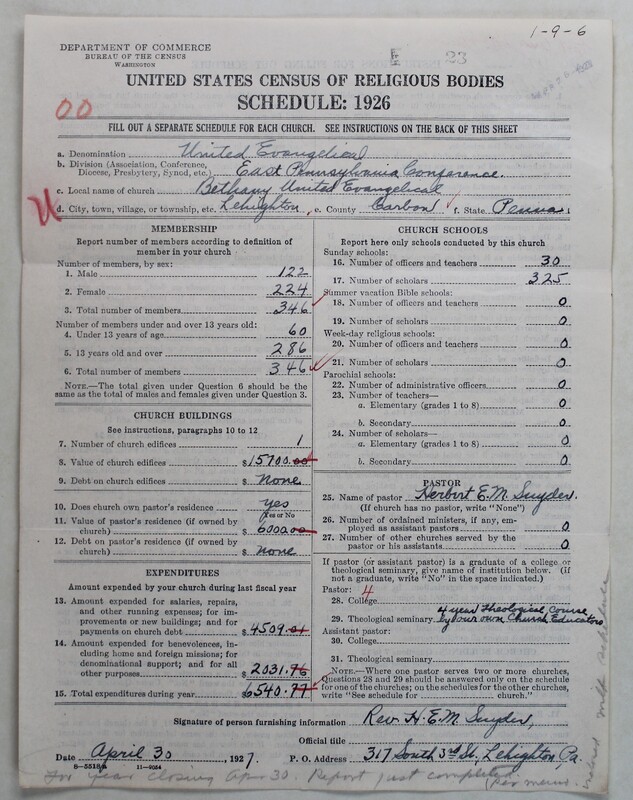 1-9-6
DEPARTMENT OF COMMERCE
BUREAU OF THE CENSUS
WASHINGTON
E 23
UNITED STATES CENSUS OF RELIGIOUS BODIES
SCHEDULE: 1926
00
FILL OUT A SEPARATE SCHEDULE FOR EACH CHURCH. SEE INSTRUCTIONS ON THE BACK OF THIS SHEET
a. Denomination United Evangelical
b. Division (Association, Conference, Diocese, Presbytery, Synod, etc.) East Pennsylvania Conference.
c. Local name of church Bethany United Evangelical
d. City, town, village, or township, etc. Lehighton, e. County Carbon f. State Penna
MEMBERSHIP
Report number of members according to definition of member in your church
Number of members, by sex:
1. Male 122
2. Female 224
3. Total number of members 346
Number of members under and over 13 years old:
4. Under 13 years of age 60
5. 13 years old and over 286
6. Total number of members 346
NOTE.—The total given under Question 6 should be the same as the total of males and females given under Question 3.
CHURCH BUILDINGS
See instructions, paragraphs 10 to 12
7. Number of church edifices 1
8. Value of church edifices $15700.00
9. Debt on church edifices $ None
10. Does church own pastor's residence yes
Yes or No
11. Value of pastor's residence (if owned by church) $6000.00
12. Debt on pastor's residence (if owned by church) $ none
EXPENDITURES
Amount expended by your church during last fiscal year
13. Amount expended for salaries, repairs, and other running expenses; for improvements or new buildings; and for payments on church debt $4509.01
14. Amount expended for benevolences, including home and foreign missions; for denominational support; and for all other purposes $2031.76
15. Total expenditures during year $6540.77
CHURCH SCHOOLS
Report here only schools conducted by this church
Sunday schools:
16. Number of officers and teachers 30
17. Number of scholars 325
Summer vacation Bible schools:
18. Number of officers and teachers 0
19. Number of scholars 0
Week-day religious schools:
20. Number of officers and teachers 0
21. Number of scholars 0
Parochial schools:
22. Number of administrative officers 0
23. Number of teachers—
a. Elementary (grades 1 to 8) 0
b. Secondary 0
24. Number of scholars—
a. Elementary (grades 1 to 8) 0
b. Secondary 0
PASTOR
25. Name of pastor Herbert E.M. Snyder.
(If church has no pastor, write "None")
26. Number of ordained ministers, if any, employed as assistant pastors 0
27. Number of other churches served by the pastor or his assistants 0
If pastor (or assistant pastor) is a graduate of a college or theological seminary, give name of institution below. (If not a graduate, write "No" in the space indicated.)
Pastor: 4
28. College
29. Theological seminary 4 year Theological Course by our own Church Educators
Assistant pastor:
30. College
31. Theological seminary
NOTE.—Where one pastor serves two or more churches, Questions 28 and 29 should be answered only on the schedule for one of the churches; on the schedules for the other churches, write "See schedule for church."
Signature of person furnishing information Rev. H.E.M. Snyder,
Official title
Date April 30, 1927. P. O. Address 317 South 3rd St., Lehighton, Pa.
8—5518a 11—9054
For year closing Apr 30. Report just completed.